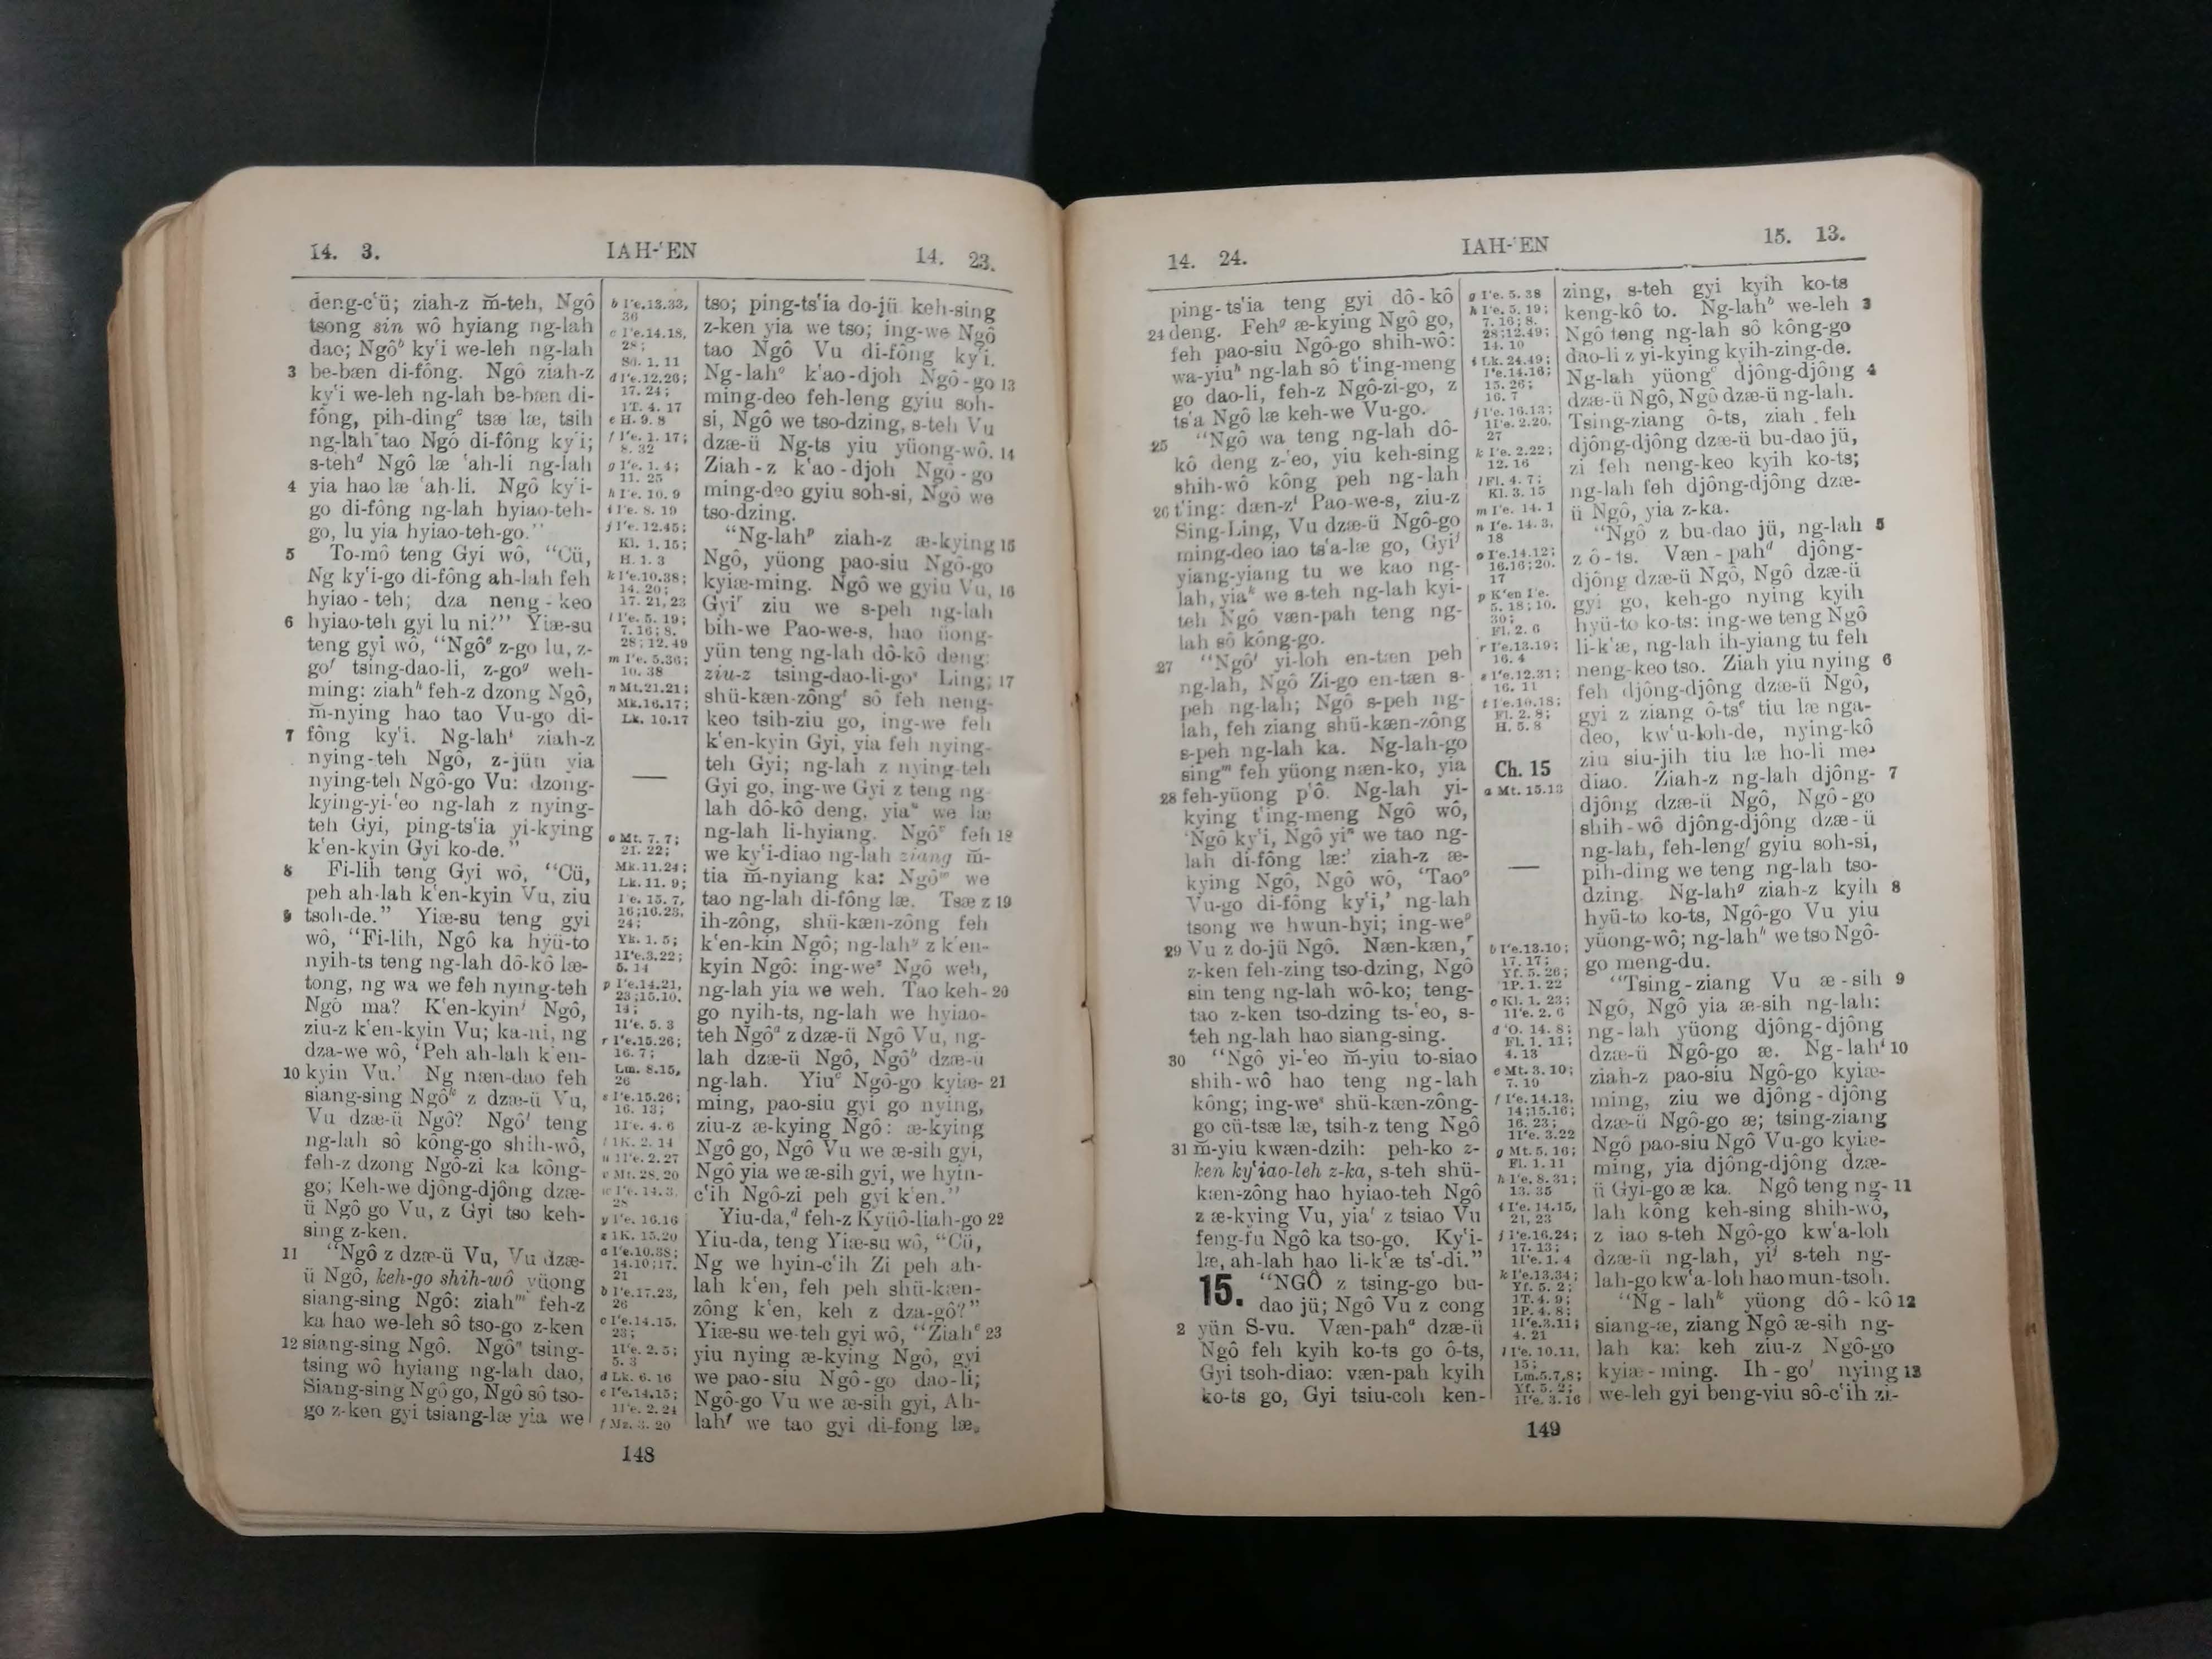 14. 3. IAH-ʻEN 14. 23.
deng-cʻü; ziah-z m̆-teh, Ngô
tsong sin wô hyiang ng-lah
dao; Ngôᵇ kyʻi we-leh ng-lah
3 be-bæn di-fông. Ngô ziah-z
kyʻi we-leh ng-lah be-bæn di-
fông, pih-dingᶜ tsæ læ, tsih
ng-lah tao Ngô di-fông kyʻi;
s-tehᵈ Ngô læ ʻah-li ng-lah
4 yia hao læ ʻah-li. Ngô kyʻi-
go di-fông ng-lah hyiao-teh-
go, lu yia hyiao-teh-go.”
5 To-mô teng Gyi wô, “Cü,
Ng kyʻi-go di-fông ah-lah feh
hyiao-teh; dza neng-keo
6 hyiao-teh gyi lu ni?” Yiæ-su
teng gyi wô, “Ngôᵉ z-go lu, z-
goᶠ tsing-dao-li, z-goᵍ weh-
ming: ziahʰ feh-z dzong Ngô,
m̆-nying hao tao Vu-go di-
7 fông kyʻi. Ng-lahⁱ ziah-z
nying-teh Ngô, z-jün yia
nying-teh Ngô-go Vu: dzong-
kying-yi-ʻeo ng-lah z nying-
teh Gyi, ping-tsʻia yi-kying
kʻen-kyin Gyi ko-de.”
8 Fi-lih teng Gyi wô, “Cü,
peh ah-lah kʻen-kyin Vu, ziu
9 tsoh-de.” Yiæ-su teng gyi
wô, “Fi-lih, Ngô ka hyü-to
nyih-ts teng ng-lah dô-kô læ-
tong, ng wa we feh nying-teh
Ngô ma? Kʻen-kyinʲ Ngô,
ziu-z kʻen-kyin Vu; ka-ni, ng
dza-we wô, ‘Peh ah-lah kʻen-
10 kyin Vu.’ Ng næn-dao feh
siang-sing Ngôᵏ z dzæ-ü Vu,
Vu dzæ-ü Ngô? Ngôˡ teng
ng-lah sô kông-go shih-wô,
feh-z dzong Ngô-zi ka kông-
go; Keh-we djông-djông dzæ-
ü Ngô go Vu, z Gyi tso keh-
sing z-ken.
11 “Ngô z dzæ-ü Vu, Vu dzæ-
ü Ngô, keh-go shih-wô yüong
siang-sing Ngô: ziahᵐ feh-z
ka hao we-leh sô tso-go z-ken
12 siang-sing Ngô. Ngôⁿ tsing-
tsing wô hyiang ng-lah dao,
Siang-sing Ngô go, Ngô sô tso-
go z-ken gyi tsiang-læ yia we
b Iʻe.13.33,
36
c Iʻe.14.18,
28;
Sd. 1. 11
d Iʻe.12.26;
17.24;
1T. 4. 17
e H. 9. 8
f Iʻe. 1. 17;
8. 32
g Iʻe. 1. 4;
11. 25
h Iʻe. 10. 9
i Iʻe. 8. 19
j Iʻe. 12.45;
Kl. 1. 15;
H. 1. 3
k Iʻe.10.38;
14. 20;
17. 21, 23
l Iʻe. 5. 19;
7. 16; 8.
28; 12.49
m Iʻe. 5.36;
10. 38
n Mt.21.21;
Mk.16.17;
Lk. 10.17
o Mt. 7. 7;
21. 22;
Mk.11.24;
Lk. 11. 9;
Iʻe. 15. 7,
16;16.23,
24;
Yk. 1. 5;
IIʻe.3.22;
5. 14
p Iʻe.14.21,
23;15.10,
14;
IIʻe. 5. 3
r Iʻe.15.26;
16. 7;
Lm. 8.15,
26
s Iʻe.15.26;
16. 13;
IIʻe. 4. 6
t 1K. 2. 14
u IIʻe. 2.27
v Mt. 28. 20
w Iʻe. 14.3,
28
y Iʻe. 16.16
z 1K. 15.20
a Iʻe.10.38;
14.10;17.
21
b Iʻe.17.23,
26
c Iʻe.14.15,
23;
IIʻe. 2. 5;
5. 3
d Lk. 6. 16
e Iʻe.14.15;
IIʻe. 2. 24
f Mz. 3. 20
tso; ping-tsʻia do-jü keh-sing
z-ken yia we tso; ing-we Ngô
tao Ngô Vu di-fông kyʻi.
Ng-lahᵒ kʻao-djoh Ngô-go 13
ming-deo feh-leng gyiu soh-
si, Ngô we tso-dzing, s-teh Vu
dzæ-ü Ng-ts yiu yüong-wô. 14
Ziah-z kʻao-djoh Ngô-go
ming-deo gyiu soh-si, Ngô we
tso-dzing.
“Ng-lahᵖ ziah-z æ-kying 15
Ngô, yüong pao-siu Ngô-go
kyiæ-ming. Ngô we gyiu Vu, 16
Gyiʳ ziu we s-peh ng-lah
bih-we Pao-we-s, hao üong-
yün teng ng-lah dô-kô deng:
ziu-z tsing-dao-li-goˢ Ling; 17
shü-kæn-zôngᵗ sô feh neng-
keo tsih-ziu go, ing-we feh
kʻen-kyin Gyi, yia feh nying-
teh Gyi; ng-lah z nying-teh
Gyi go, ing-we Gyi z teng ng-
lah dô-kô deng, yiaᵘ we læ
ng-lah li-hyiang. Ngôᵛ feh 18
we kyʻi-diao ng-lah ziang m̆-
tia m̆-nyiang ka: Ngôʷ we
tao ng-lah di-fông læ. Tsæ z 19
ih-zông, shü-kæn-zông feh
kʻen-kin Ngô; ng-lahʸ z kʻen-
kyin Ngô: ing-weᶻ Ngô weh,
ng-lah yia we weh. Tao keh- 20
go nyih-ts, ng-lah we hyiao-
teh Ngôᵃ z dzæ-ü Ngô Vu, ng-
lah dzæ-ü Ngô, Ngôᵇ dzæ-ü
ng-lah. Yiuᶜ Ngô-go kyiæ- 21
ming, pao-siu gyi go nying,
ziu-z æ-kying Ngô: æ-kying
Ngô go, Ngô Vu we æ-sih gyi,
Ngô yia we æ-sih gyi, we hyin-
cʻih Ngô-zi peh gyi kʻen.”
Yiu-da,ᵈ feh-z Kyüô-liah-go 22
Yiu-da, teng Yiæ-su wô, “Cü,
Ng we hyin-cʻih Zi peh ah-
lah kʻen, feh peh shü-kæn-
zông kʻen, keh z dza-gô?”
Yiæ-su we-teh gyi wô, “Ziahᵉ 23
yiu nying æ-kying Ngô, gyi
we pao-siu Ngô-go dao-li;
Ngô-go Vu we æ-sih gyi, Ah-
lahᶠ we tao gyi di-fong læ,
148
14. 24. IAH-ʻEN 15. 13.
ping-tsʻia teng gyi dô-kô
24 deng. Fehᵍ æ-kying Ngô go,
feh pao-siu Ngô-go shih-wô:
wa-yiuʰ ng-lah sô tʻing-meng
go dao-li, feh-z Ngô-zi-go, z
tsʻa Ngô læ keh-we Vu-go.
25 “Ngô wa teng ng-lah dô-
kô deng z-ʻeo, yiu keh-sing
shih-wô kông peh ng-lah
26 tʻing: dæn-zⁱ Pao-we-s, ziu-z
Sing-Ling, Vu dzæ-ü Ngô-go
ming-deo iao tsʻa-læ go, Gyiʲ
yiang-yiang tu we kao ng-
lah, yiaᵏ we s-teh ng-lah kyi-
teh Ngô væn-pah teng ng-
lah sô kông-go.
27 “Ngôˡ yi-loh en-tæn peh
ng-lah, Ngô Zi-go en-tæn s-
peh ng-lah; Ngô s-peh ng-
lah, feh ziang shü-kæn-zông
s-peh ng-lah ka. Ng-lah-go
singᵐ feh yüong næn-ko, yia
28 feh-yüong pʻô. Ng-lah yi-
kying tʻing-meng Ngô wô,
‘Ngô kyʻi, Ngô yiⁿ we tao ng-
lah di-fông læ:’ ziah-z æ-
kying Ngô, Ngô wô, ‘Taoᵒ
Vu-go di-fông kyʻi,’ ng-lah
tsong we hwun-hyi; ing-weᵖ
29 Vu z do-jü Ngô. Næn-kæn,ʳ
z-ken feh-zing tso-dzing, Ngô
sin teng ng-lah wô-ko; teng-
tao z-ken tso-dzing ts-ʻeo, s-
teh ng-lah hao siang-sing.
30 “Ngô yi-ʻeo m̆-yiu to-siao
shih-wô hao teng ng-lah
kông; ing-weˢ shü-kæn-zông-
go cü-tsæ læ, tsih-z teng Ngô
31 m̆-yiu kwæn-dzih: peh-ko z-
ken kyʻiao-leh z-ka, s-teh shü-
kæn-zông hao hyiao-teh Ngô
z æ-kying Vu, yiaᵗ z tsiao Vu
feng-fu Ngô ka tso-go. Kyʻi-
læ, ah-lah hao li-kʻæ tsʻ-di.”
15. “NGÔ z tsing-go bu-
dao jü; Ngô Vu z cong
2 yün S-vu. Væn-pahᵃ dzæ-ü
Ngô feh kyih ko-ts go ô-ts,
Gyi tsoh-diao: væn-pah kyih
ko-ts go, Gyi tsiu-coh ken-
g Iʻe. 5. 38
h Iʻe. 5. 19;
7. 16; 8.
28;12.49;
14. 10
i Lk. 24.49;
Iʻe.14.16;
15. 26;
16. 7
j Iʻe. 16.13;
IIʻe. 2.20,
27
k Iʻe. 2.22;
12. 16
l Fl. 4. 7;
Kl. 3. 15
m Iʻe. 14. 1
n Iʻe. 14. 3,
18
o Iʻe.14.12;
16.16;20.
17
p Kʻen Iʻe.
5. 18; 10.
30;
Fl. 2. 6
r Iʻe.13.19;
16. 4
s Iʻe.12.31;
16. 11
t Iʻe.10.18;
Fl. 2. 8;
H. 5. 8
Ch. 15
a Mt. 15.13
b Iʻe.13.10;
17. 17;
Yf. 5. 26;
1P. 1. 22
c Kl. 1. 23;
IIʻe. 2. 6
d ʻO. 14. 8;
Fl. 1. 11;
4. 13
e Mt. 3. 10;
7. 19
f Iʻe. 14.13,
14;15.16;
16. 23;
IIʻe. 3.22
g Mt. 5. 16;
Fl. 1. 11
h Iʻe. 8. 31;
13. 35
i Iʻe. 14.15,
21, 23
j Iʻe.16.24;
17. 13;
IIʻe. 1. 4
k Iʻe.13.34;
Yf. 5. 2;
1T. 4. 9;
1P. 4. 8;
IIʻe.3.11;
4. 21
l Iʻe. 10.11,
15;
Lm.5.7,8;
Yf. 5. 2;
IIʻe. 3. 16
zing, s-teh gyi kyih ko-ts
keng-kô to. Ng-lahᵇ we-leh 3
Ngô teng ng-lah sô kông-go
dao-li z yi-kying kyih-zing-de.
Ng-lah yüongᶜ djông-djông 4
dzæ-ü Ngô, Ngô dzæ-ü ng-lah.
Tsing-ziang ô-ts, ziah feh
djông-djông dzæ-ü bu-dao jü,
zi feh neng-keo kyih ko-ts;
ng-lah feh djông-djông dzæ-
ü Ngô, yia z-ka.
“Ngô z bu-dao jü, ng-lah 5
z ô-ts. Væn-pahᵈ djông-
djông dzæ-ü Ngô, Ngô dzæ-ü
gyi go, keh-go nying kyih
hyü-to ko-ts: ing-we teng Ngô
li-kʻæ, ng-lah ih-yiang tu feh
neng-keo tso. Ziah yiu nying 6
feh djông-djông dzæ-ü Ngô,
gyi z ziang ô-tsᵉ tiu læ nga-
deo, kwʻu-loh-de, nying-kô
ziu siu-jih tiu læ ho-li me-
diao. Ziah-z ng-lah djông- 7
djông dzæ-ü Ngô, Ngô-go
shih-wô djông-djông dzæ-ü
ng-lah, feh-lengᶠ gyiu soh-si,
pih-ding we teng ng-lah tso-
dzing. Ng-lahᵍ ziah-z kyih 8
hyü-to ko-ts, Ngô-go Vu yiu
yüong-wô; ng-lahʰ we tso Ngô-
go meng-du.
“Tsing-ziang Vu æ-sih 9
Ngô, Ngô yia æ-sih ng-lah:
ng-lah yüong djông-djông
dzæ-ü Ngô-go æ. Ng-lahⁱ 10
ziah-z pao-siu Ngô-go kyiæ-
ming, ziu we djông-djông
dzæ-ü Ngô-go æ; tsing-ziang
Ngô pao-siu Ngô Vu-go kyiæ-
ming, yia djông-djông dzæ-
ü Gyi-go æ ka. Ngô teng ng- 11
lah kông keh-sing shih-wô,
z iao s-teh Ngô-go kwʻa-loh
dzæ-ü ng-lah, yiʲ s-teh ng-
lah-go kwʻa-loh hao mun-tsoh.
“Ng-lahᵏ yüong dô-kô 12
siang-æ, ziang Ngô æ-sih ng-
lah ka: keh ziu-z Ngô-go
kyiæ-ming. Ih-goˡ nying 13
we-leh gyi beng-yiu sô-cʻih zi-
149